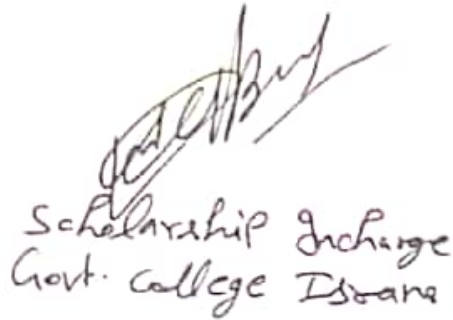 Scholarship Incharge
Govt. College Israna